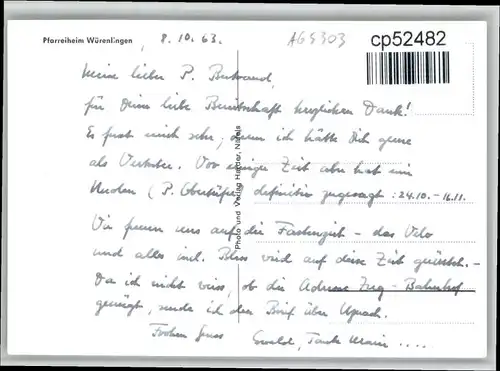 Pfarreiheim Würenlingen
8.10.63.
AG5303
cp52482
Meine lieber P. Bertrand,
für Deine liebe Bereitschaft herzlichen Dank!
Es freut mich sehr, denn ich hätte Dich gerne
als Vertreter. Vor einiger Zeit aber hat ein
(P. definitiv zugesagt: 24.10. - 16.11.
Wir freuen uns auf die Fastenzeit - das Velo
und alles incl. Bless wird auf diese Zeit . -
Da ich nicht weiss, ob die Adresse Zug - Bahnhof
genügt, sende ich den Brief über
Frohen Gruss Ewald, Tante Marie ....
Photo und Verlag Harder, Näfels